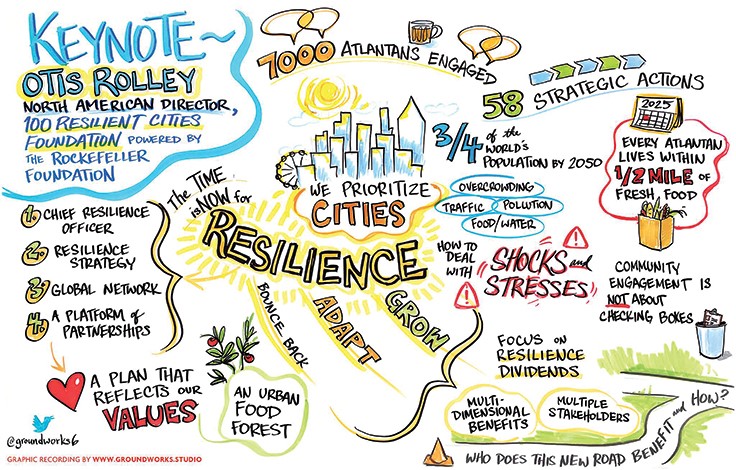 KEYNOTE~
OTIS ROLLEY
NORTH AMERICAN DIRECTOR,
100 RESILIENT CITIES
FOUNDATION POWERED BY
THE ROCKEFELLER
FOUNDATION
7000 ATLANTANS ENGAGED
58 STRATEGIC ACTIONS
3/4 of the
WORLD'S
POPULATION BY 2050
2025
EVERY ATLANTAN
LIVES WITHIN
1/2 MILE OF
FRESH FOOD
WE PRIORITIZE
CITIES
OVERCROWDING
TRAFFIC
POLLUTION
FOOD/WATER
The TIME
is NOW for
RESILIENCE
BOUNCE BACK
ADAPT
GROW
1. CHIEF RESILIENCE
OFFICER
2. RESILIENCE
STRATEGY
3. GLOBAL NETWORK
4. A PLATFORM of
PARTNERSHIPS
HOW TO
DEAL
WITH
SHOCKS and
STRESSES
COMMUNITY
ENGAGEMENT IS
NOT ABOUT
CHECKING BOXES
A PLAN THAT
REFLECTS OUR
VALUES
AN URBAN
FOOD
FOREST
FOCUS ON
RESILIENCE
DIVIDENDS
MULTI-
DIMENSIONAL
BENEFITS
MULTIPLE
STAKEHOLDERS
WHO DOES THIS NEW ROAD BENEFIT and HOW?
@groundworks6
GRAPHIC RECORDING BY WWW.GROUNDWORKS.STUDIO